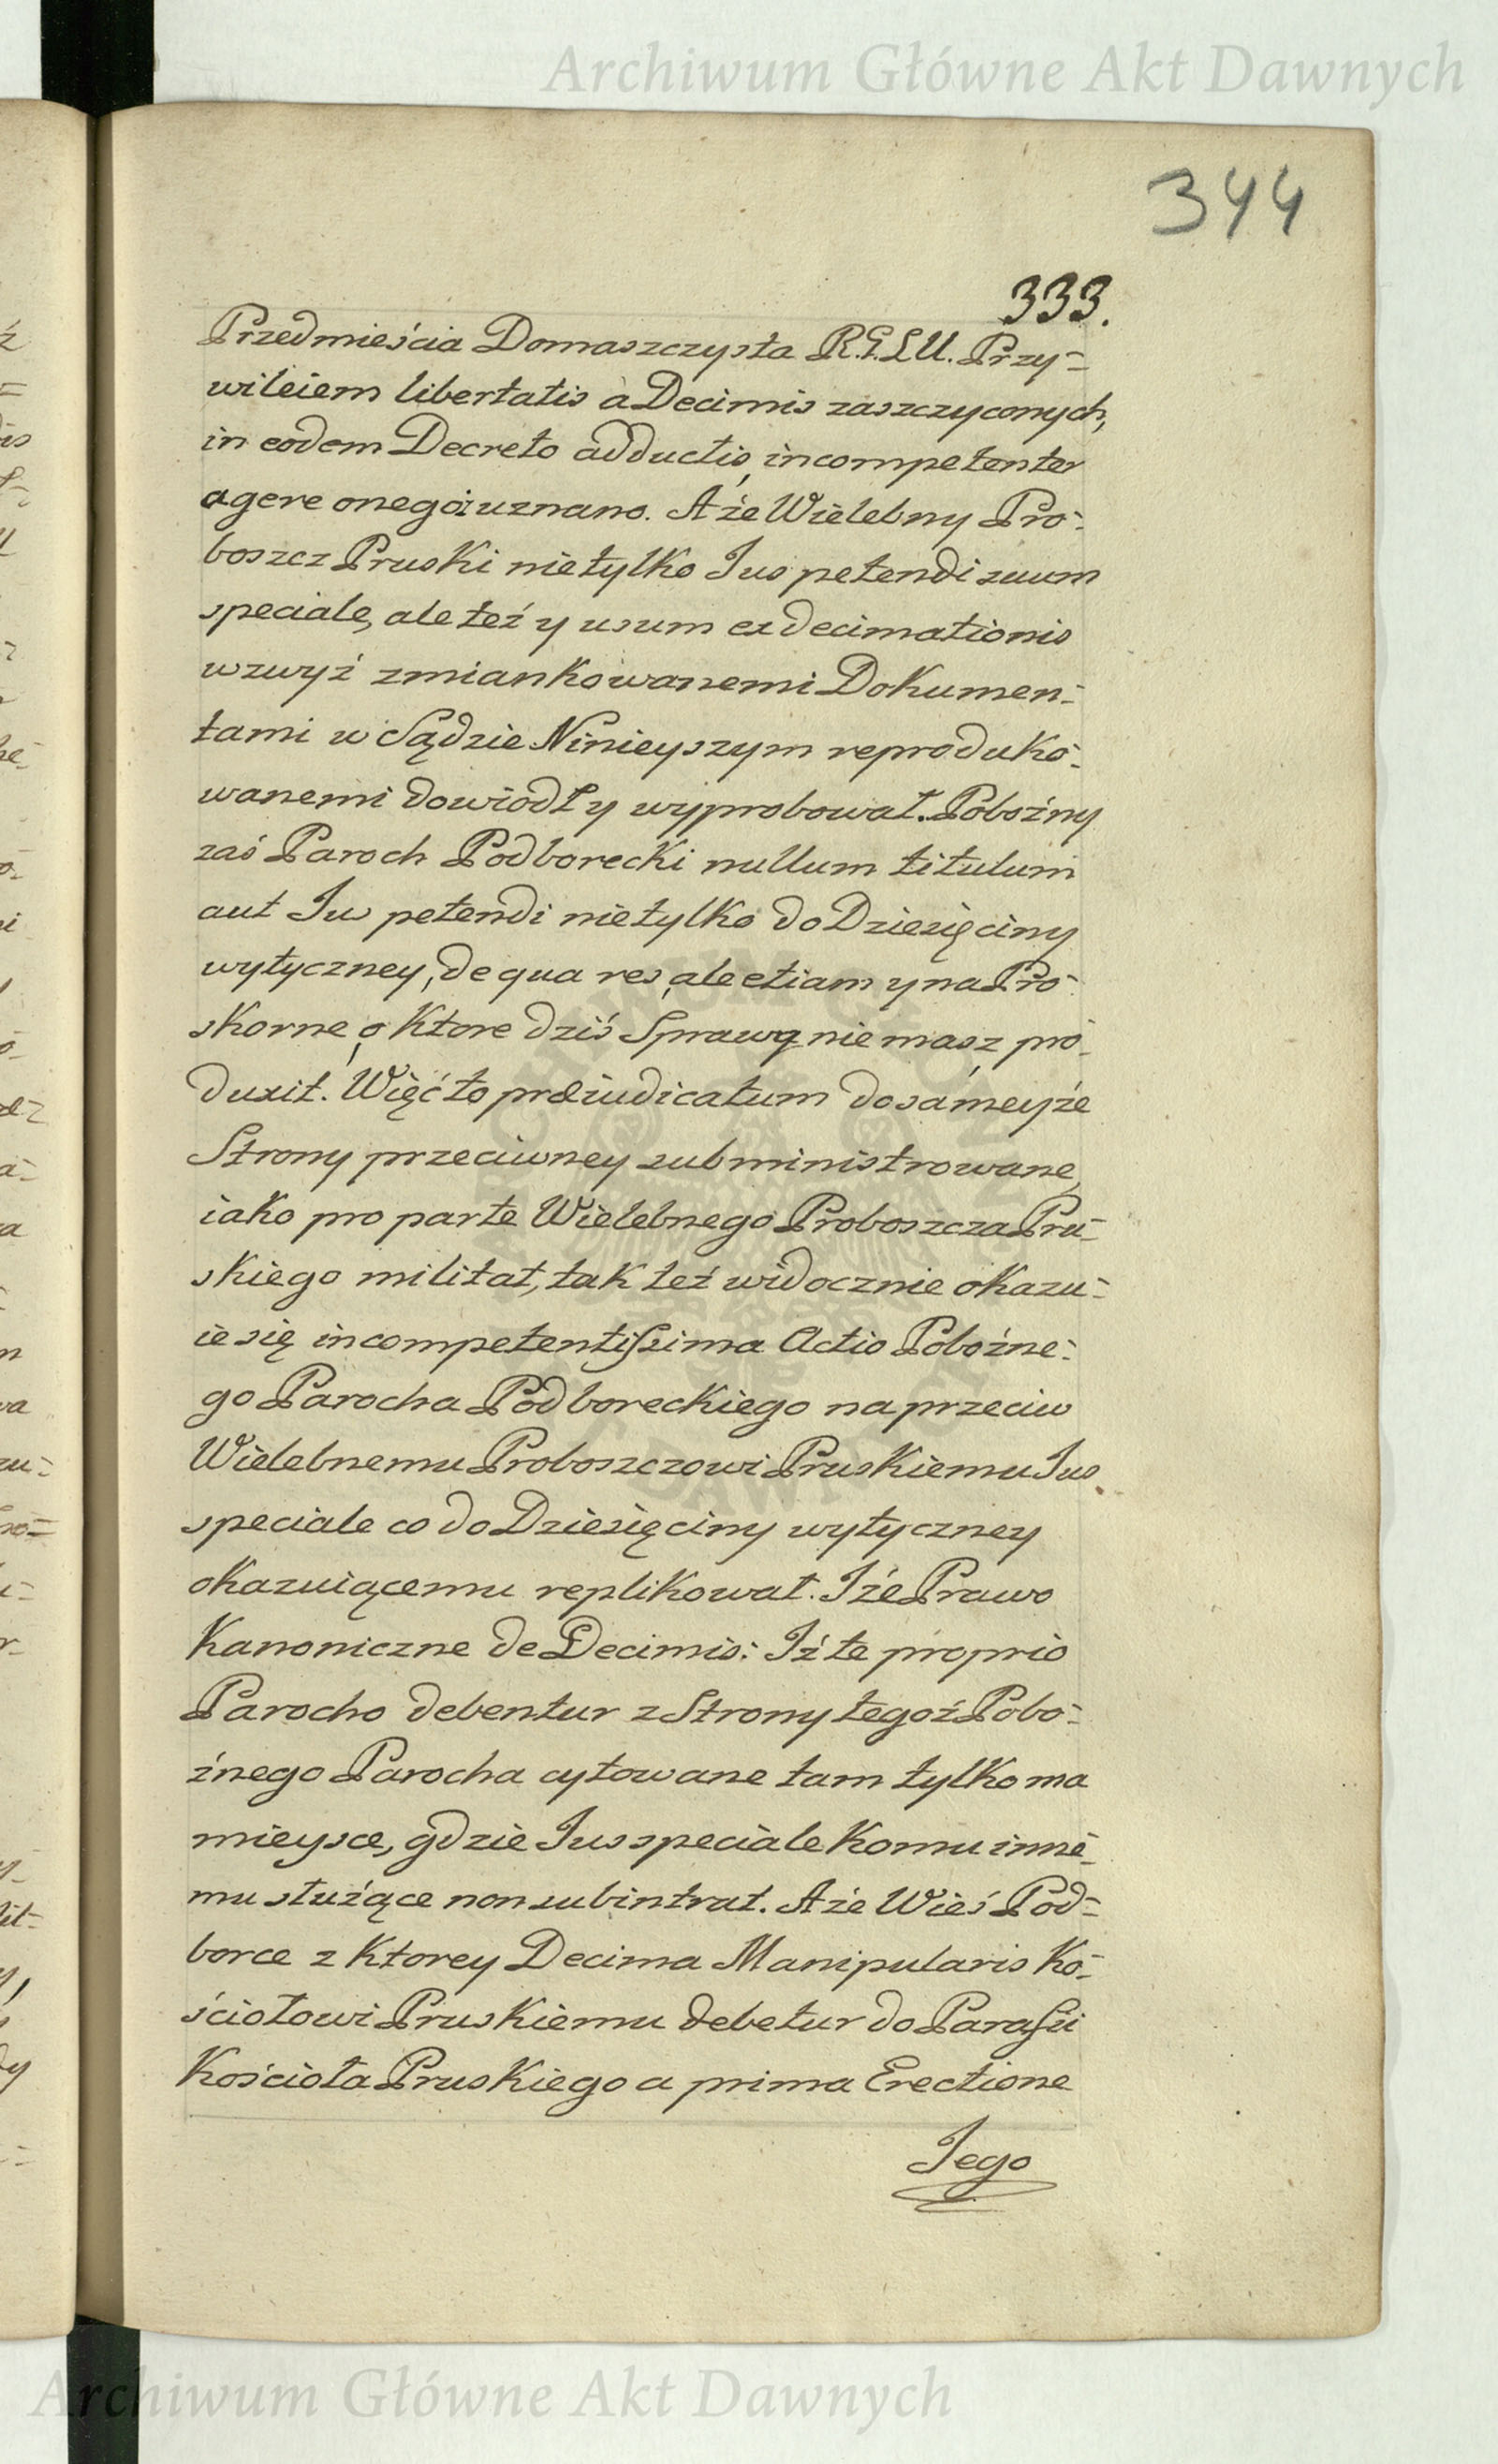 Archiwum Główne Akt Dawnych
344
333.
Przedmieścia Domaszczysta R.G.L.U. Przy=
wileiem libertatis a Decimis zaszczyconych,
in eodem Decreto adductis, incompetenter
agere onego uznano. A że Wielebny Pro-
boszcz Pruski nietylko Ius petendi suum
speciale, ale też y usum exdecimationis
wzwyż zmiankowanemi Dokumen-
tami w Sądzie Ninieyszym reproduko-
wanemi dowiodł y wyprobował. Pobożny
zaś Paroch Podborecki nullum titulum
aut Ius petendi nietylko do Dziesięciny
wytyczney, de qua res, ale etiam y na Pro-
skorne, o ktore dziś Sprawy nie masz, pro-
duxit. Więć to præiudicatum do sameyże
Strony przeciwney subministrowane,
iako pro parte Wielebnego Proboszcza Pru-
skiego militat, tak też widocznie okazu-
ie się incompetentissima Actio Pobożne-
go Parocha Podboreckiego naprzeciw
Wielebnemu Proboszczowi Pruskiemu Ius
speciale co do Dziesięciny wytyczney
okazuiącemu replikował. I że Prawo
Kanoniczne de Decimis: Iż te proprio
Parocho debentur z Strony tegoż Pobo-
żnego Parocha cytowane tam tylko ma
mieysce, gdzie Ius speciale komu inne-
mu służące non subintrat. A że Wieś Pod=
borce z ktorey Decima Manipularis Ko-
ściołowi Pruskiemu debetur do Parafii
Kościoła Pruskiego a prima Erectione
Jego
Archiwum Główne Akt Dawnych